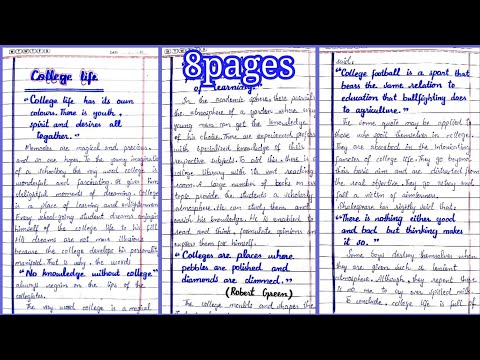 8pages
College life
"College life has its own
colours. There is youth,
spirit and desires all
together."
Memories are magical and precious
and so are hopes. To the young imagination
of a schoolboy the very word college is
wonderful and fascinating. It gives him
delightful moments of dreaming. College
is a place of learning and enlightenment.
Every school-going student dreams
himself of the college life to his fill.
His dreams are not mere illusions
because the college develops his personality
That is why, the words
"No knowledge without college"
always remain on the lips of the
collegiates.
The very word college is a
of learning.
In the academic sphere, there prevails
the atmosphere of a garden where
young man can get the knowledge
of his choice. There are experienced
with specialized knowledge of their
respective subjects. To aid this, there is a
college library with its vast reading
room. A large number of books on every
topic provide the students a scholarly
atmosphere. He can study them and
enrich his knowledge. He is enabled to
read and think, formulate opinions and
express them for himself.
"Colleges are places where
pebbles are polished and
diamonds are dimmed."
(Robert Green)
The college moulds and shapes the
said.
"College football is a sport that
bears the same relation to
education that bullfighting does
to agriculture."
The same quote may be applied to
those who spoil themselves in college.
They are absorbed in the intoxicating
of college life. They go beyond
their basic aim and are distracted from
the real objective. They go astray and
fall a victim of aimlessness.
Shakespeare has rightly said that:
"There is nothing either good
and bad but thinking makes
it so."
Some boys destroy themselves when
they are given such a lenient
atmosphere. Although, they repent there
is no use to cry over spilled milk.
To conclude, college life is full of